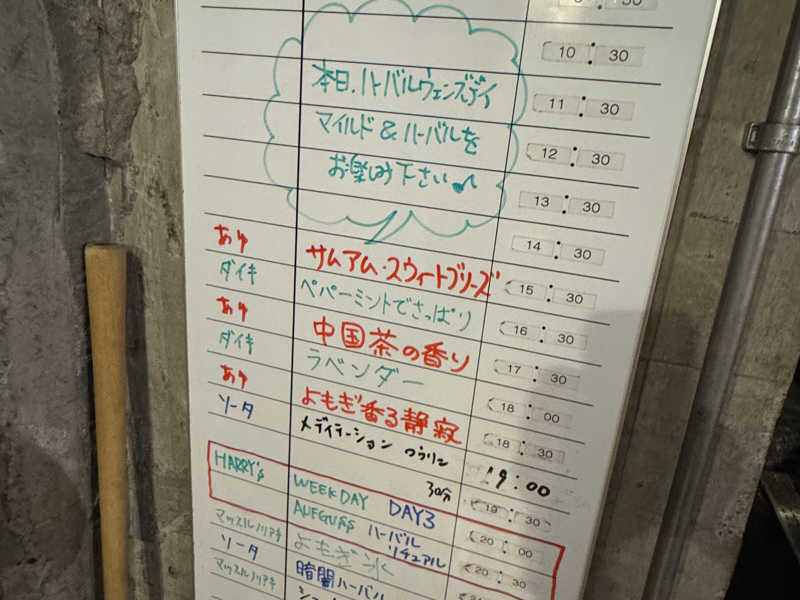 10:30
本日、ハーバルウェンズデイ
11:30
マイルド&ハーバルを
12:30
お楽しみ下さい♪
13:30
14:30
あゆ サムアム・スウィートブリーズ 15:30
ダイキ ペパーミントでさっぱり 16:30
あゆ 中国茶の香り 17:30
ダイキ ラベンダー 18:00
あゆ よもぎ香る静寂 18:30
ソータ メディテーション 19:00
30分
19:30
HARRY's WEEKDAY DAY3 20:00
AUFGUSS ハーバルリチュアル
マッスルノリアキ よもぎ氷 20:30
ソータ 暗闇ハーバル
マッスルノリアキ